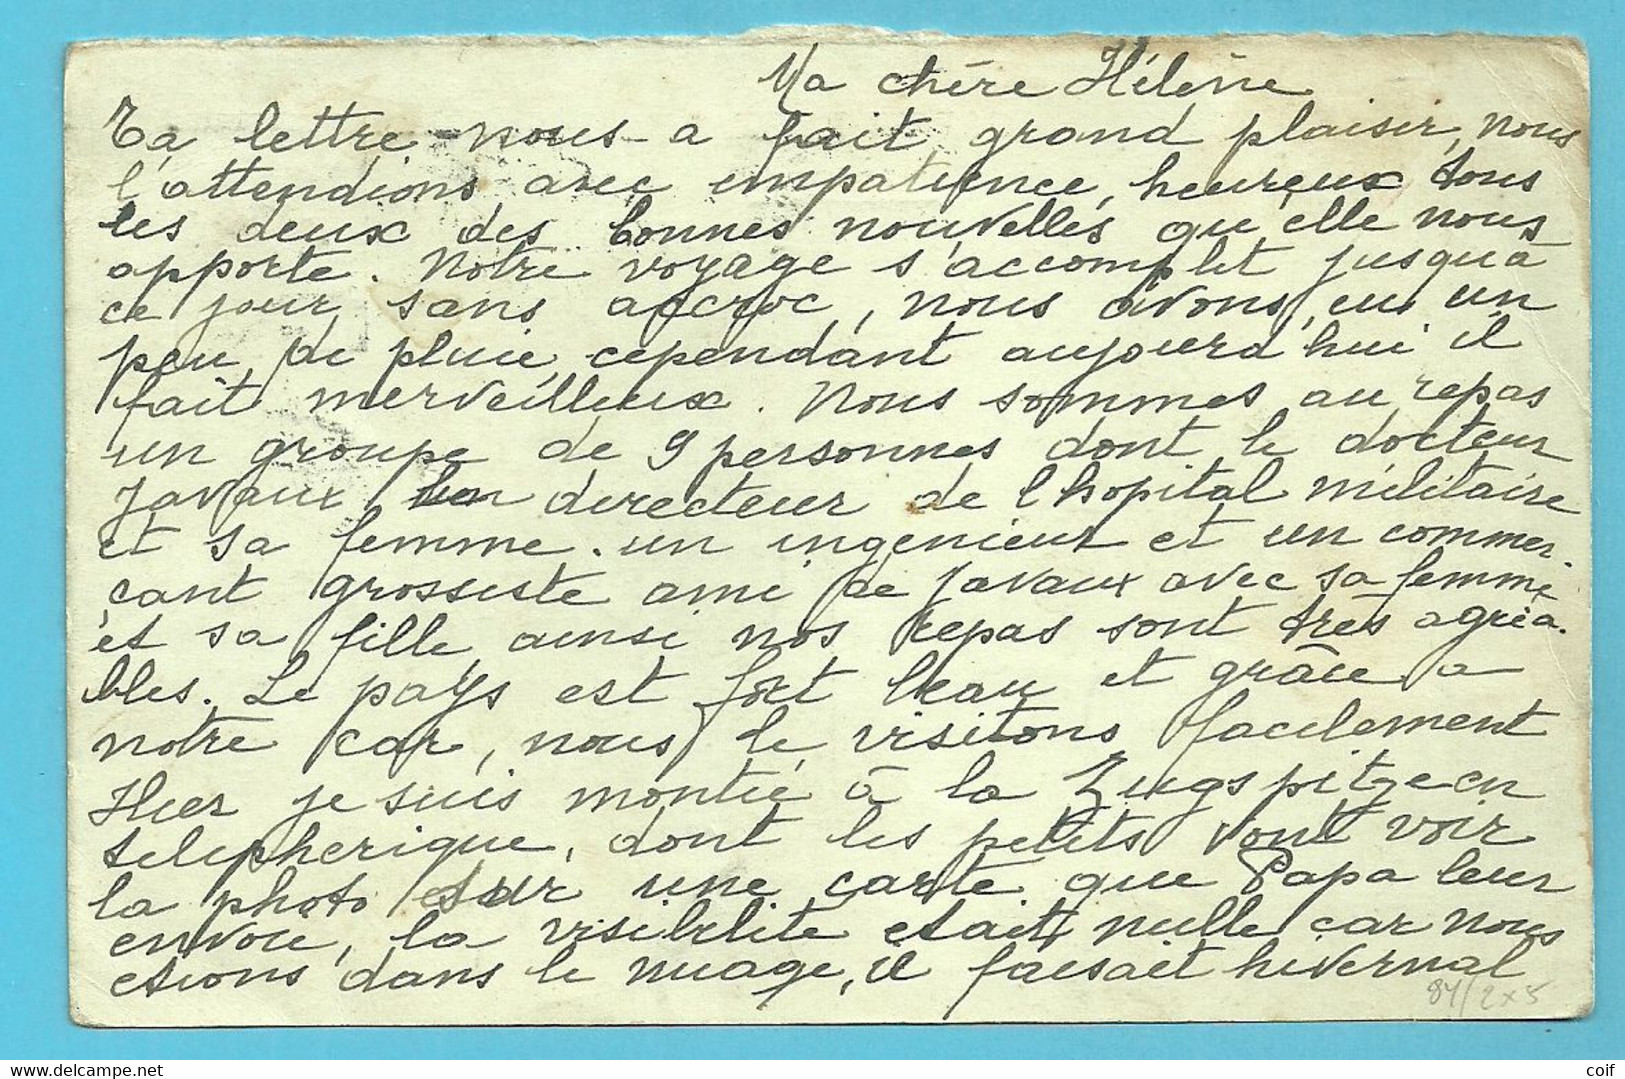 Ma chère Hélène
Ta lettre nous a fait grand plaisir, nous
l'attendions avec impatience, heureux tous
les deux des bonnes nouvelles qu'elle nous
apporte. Notre voyage s'accomplit jusqu'à
ce jour sans accroc, nous avons eu un
peu de pluie, cependant aujourd'hui il
fait merveilleux. Nous sommes au repas
un groupe de 9 personnes dont le docteur
Javaux directeur de l'hopital militaire
et sa femme. un ingenieur et un commer.
çant grossiste ami de Javaux avec sa femme
et sa fille ainsi nos repas sont très agréa.
bles. Le pays est fort beau et grâce a
notre car, nous le visitons facilement
Hier je suis montée à la Zugspitze en
telepherique, dont les petits vont voir
la photo sur une carte que Papa leur
envoie, la visibilité etait nulle car nous
etions dans le nuage, il faisait hivernal
84/2x5
delcampe.net
coif